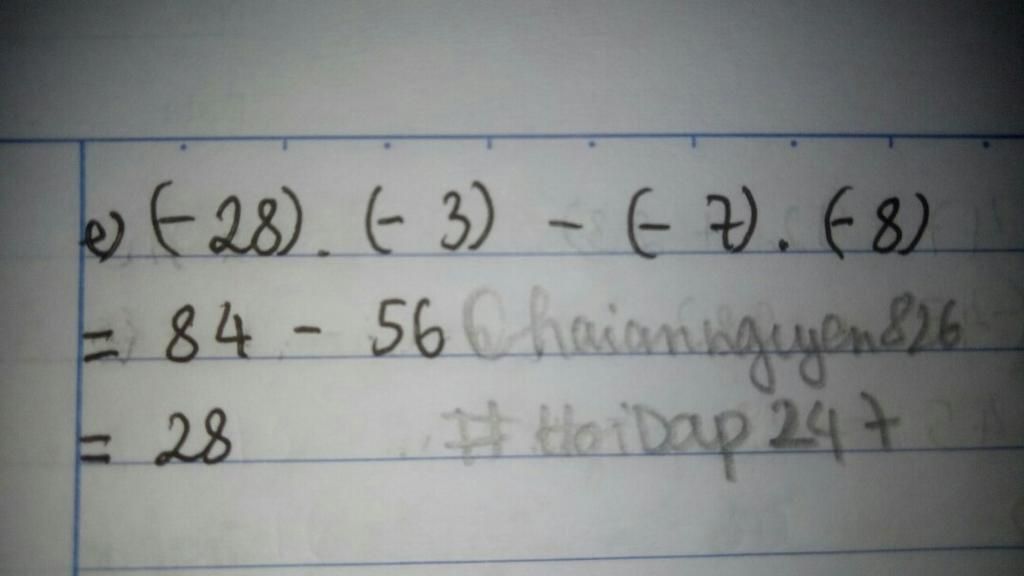 e) (- 28) . (- 3) - (- 7) . (- 8)
= 84 - 56 @haiannguyen826
= 28 #HoiDap247